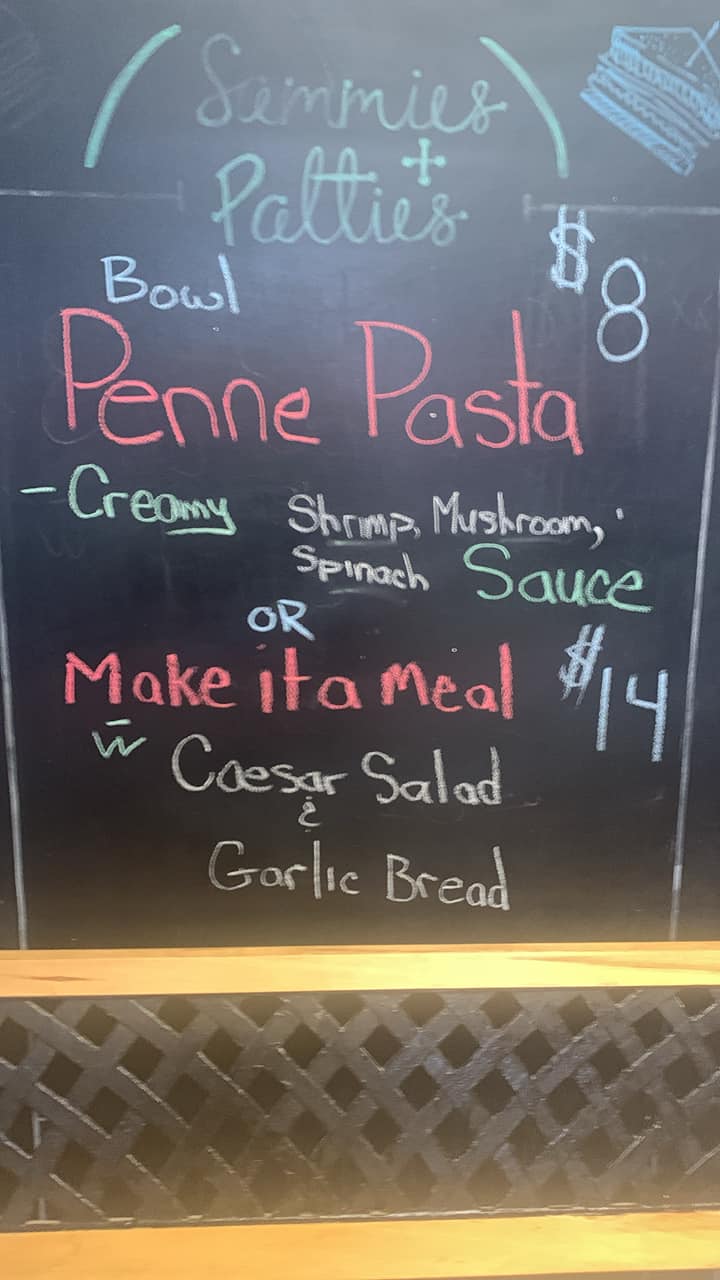 Sammies
+
Patties
Bowl $8
Penne Pasta
- Creamy Shrimp, Mushroom,
Spinach Sauce
OR
Make it a Meal $14
w Caesar Salad
&
Garlic Bread